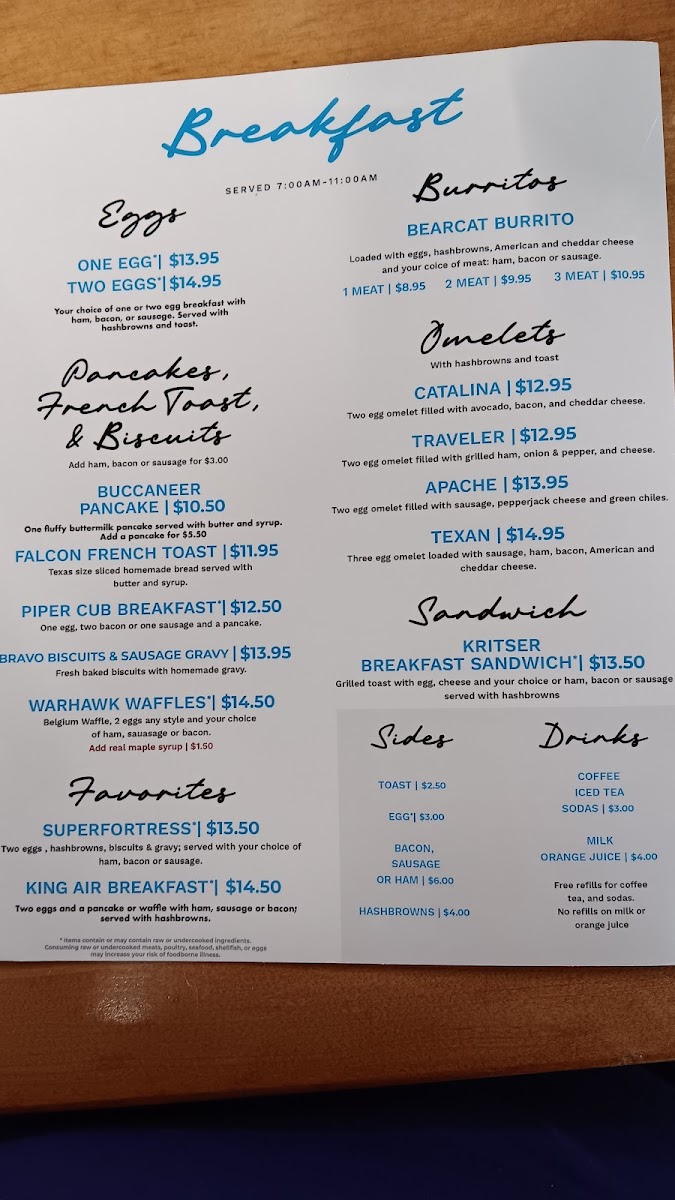 Breakfast
SERVED 7:00AM-11:00AM
Eggs
ONE EGG*| $13.95
TWO EGGS*| $14.95
Your choice of one or two egg breakfast with
ham, bacon, or sausage. Served with
hashbrowns and toast.
Pancakes,
French Toast,
& Biscuits
Add ham, bacon or sausage for $3.00
BUCCANEER
PANCAKE | $10.50
One fluffy buttermilk pancake served with butter and syrup.
Add a pancake for $5.50
FALCON FRENCH TOAST | $11.95
Texas size sliced homemade bread served with
butter and syrup.
PIPER CUB BREAKFAST*| $12.50
One egg, two bacon or one sausage and a pancake.
BRAVO BISCUITS & SAUSAGE GRAVY | $13.95
Fresh baked biscuits with homemade gravy.
WARHAWK WAFFLES*| $14.50
Belgium Waffle, 2 eggs any style and your choice
of ham, sauasage or bacon.
Add real maple syrup | $1.50
Favorites
SUPERFORTRESS*| $13.50
Two eggs , hashbrowns, biscuits & gravy; served with your choice of
ham, bacon or sausage.
KING AIR BREAKFAST*| $14.50
Two eggs and a pancake or waffle with ham, sausage or bacon;
served with hashbrowns.
* Items contain or may contain raw or undercooked ingredients.
Consuming raw or undercooked meats, poultry, seafood, shellfish, or eggs
may increase your risk of foodborne illness.
Burritos
BEARCAT BURRITO
Loaded with eggs, hashbrowns, American and cheddar cheese
and your coice of meat: ham, bacon or sausage.
1 MEAT | $8.95 2 MEAT | $9.95 3 MEAT | $10.95
Omelets
With hashbrowns and toast
CATALINA | $12.95
Two egg omelet filled with avocado, bacon, and cheddar cheese.
TRAVELER | $12.95
Two egg omelet filled with grilled ham, onion & pepper, and cheese.
APACHE | $13.95
Two egg omelet filled with sausage, pepperjack cheese and green chiles.
TEXAN | $14.95
Three egg omelet loaded with sausage, ham, bacon, American and
cheddar cheese.
Sandwich
KRITSER
BREAKFAST SANDWICH*| $13.50
Grilled toast with egg, cheese and your choice or ham, bacon or sausage
served with hashbrowns
Sides
TOAST | $2.50
EGG*| $3.00
BACON,
SAUSAGE
OR HAM | $6.00
HASHBROWNS | $4.00
Drinks
COFFEE
ICED TEA
SODAS | $3.00
MILK
ORANGE JUICE | $4.00
Free refills for coffee
tea, and sodas.
No refills on milk or
orange juice